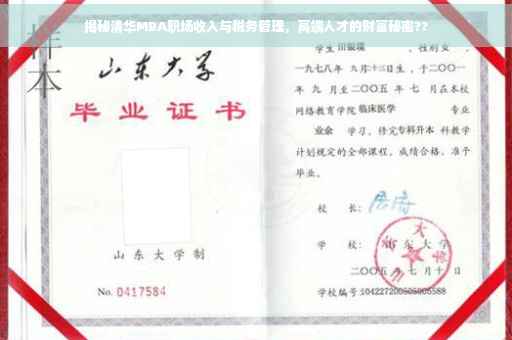 揭秘清华MBA职场收入与税务管理，高端人才的财富秘密??
样本
山东大学
毕业证书
山东大学制
No. 0417584
学生 田银瑞 ，性别 女 ，
一九七八年 九月十三日生，于二〇〇一
年 九 月至二〇〇五 年 七 月在本校
网络教育学院 临床医学 专业
业余 学习，修完专科升本 科教学
计划规定的全部课程，成绩合格，准予
毕业。
校 长：
学 校： 山东大学
二〇〇五年七月十日
学校编号:104227200505005588